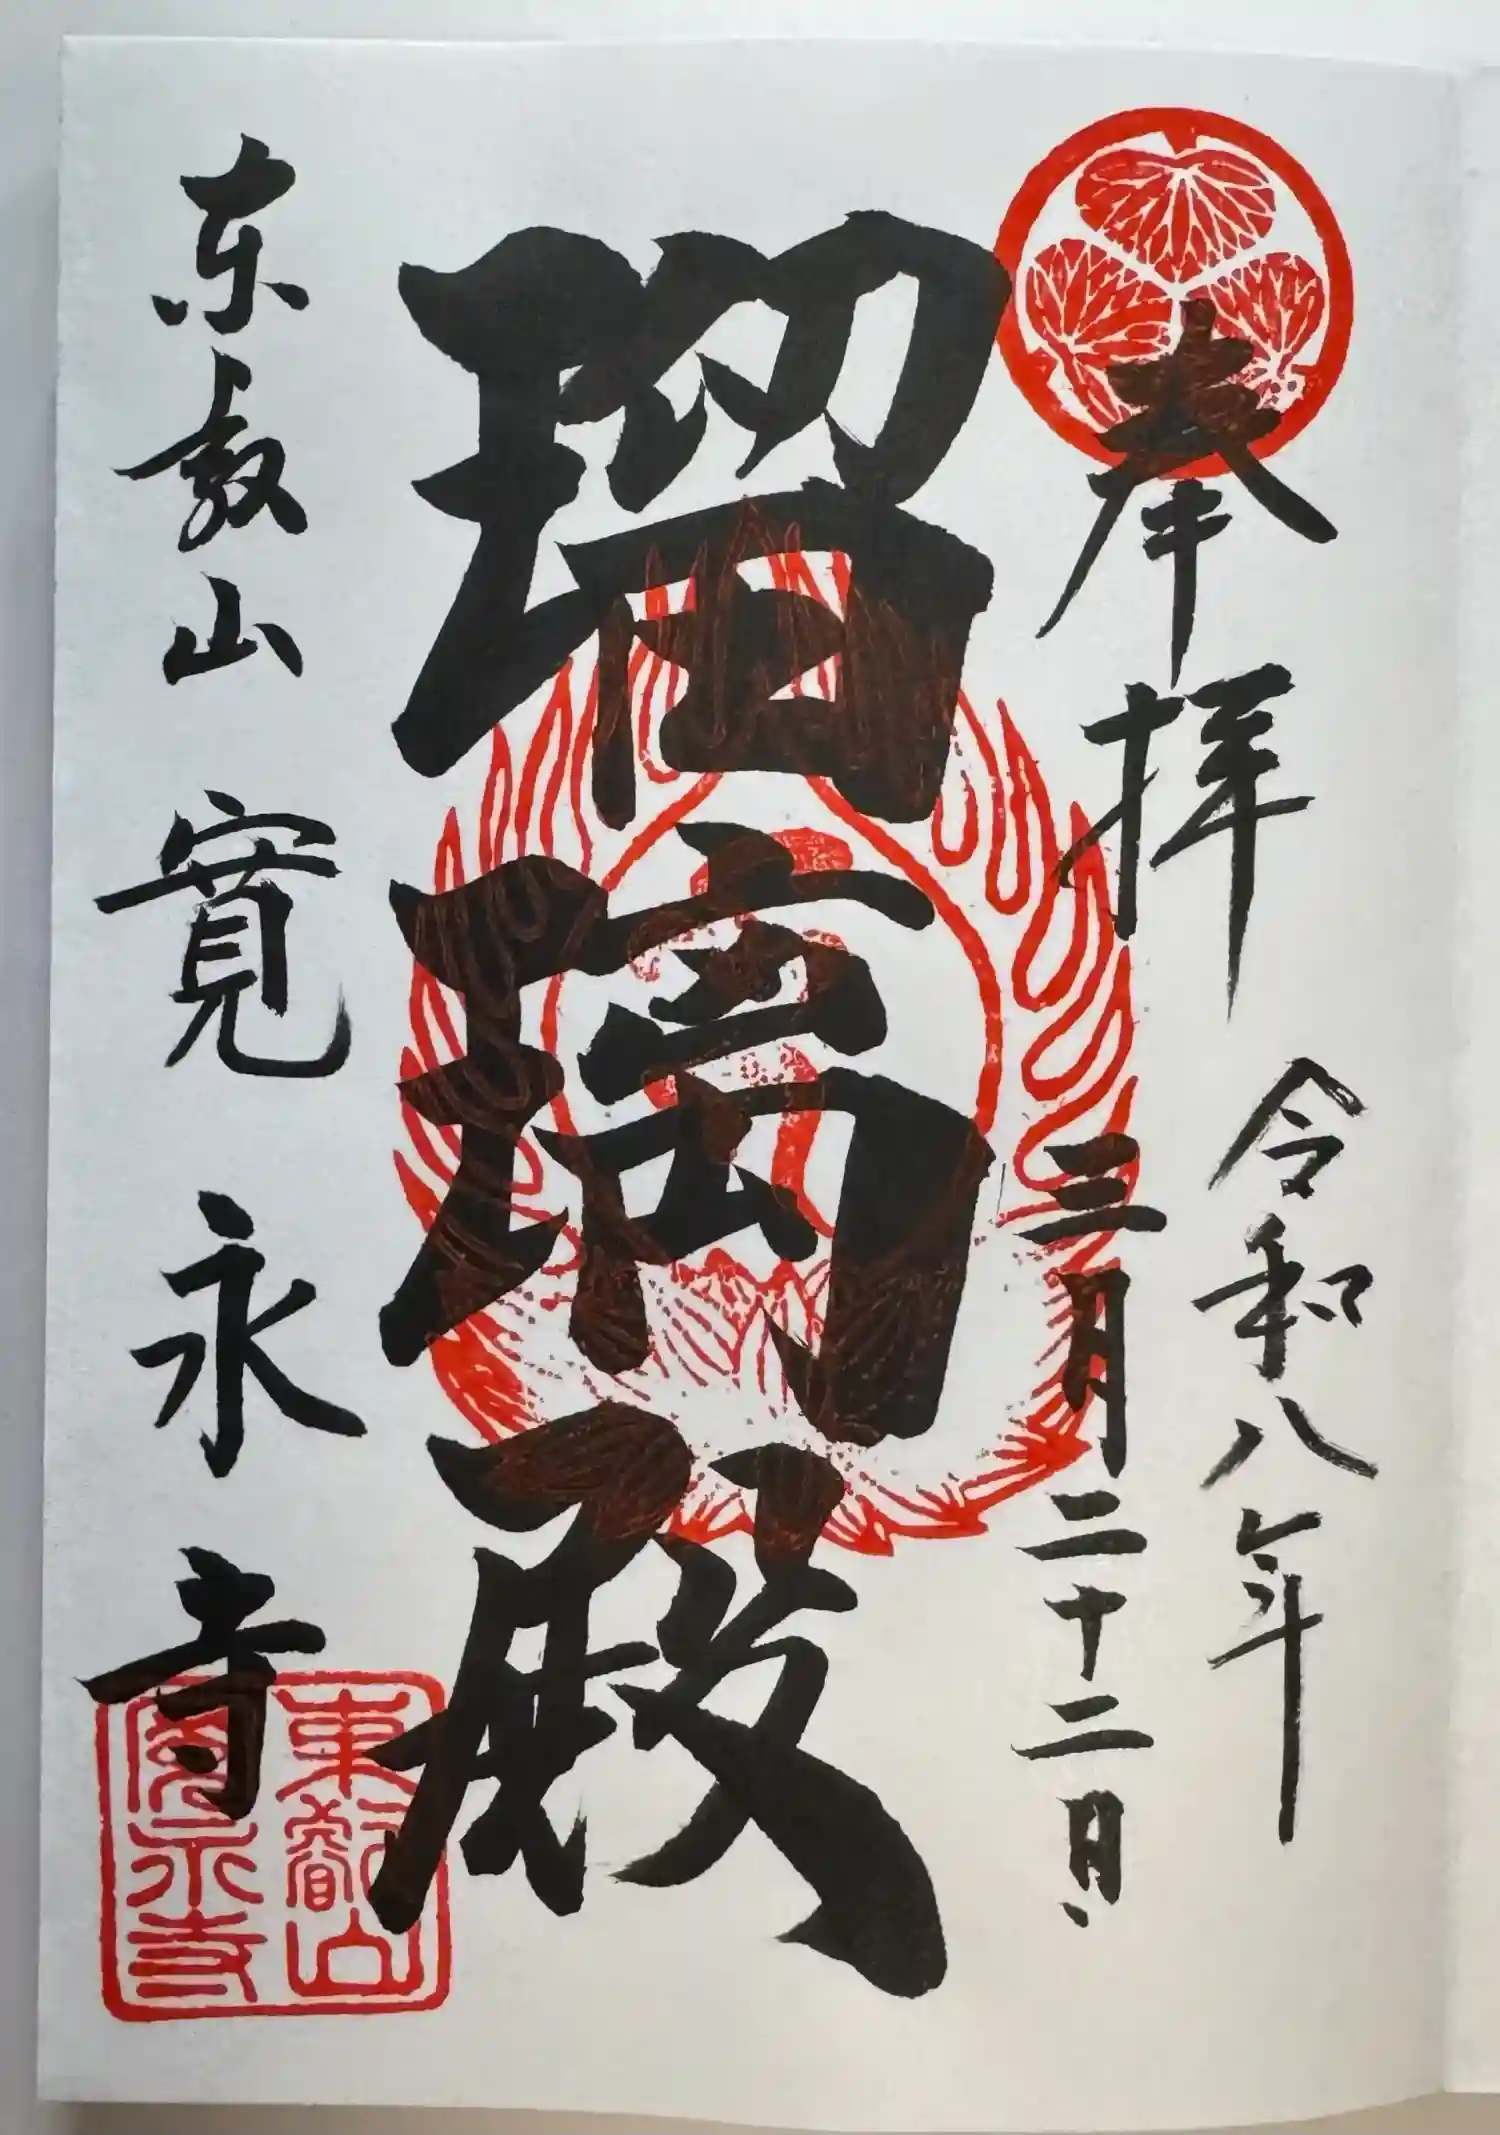 奉拝
令和八年
三月二十二日
瑠璃殿
东叡山
寛永寺
東叡山
寛永寺